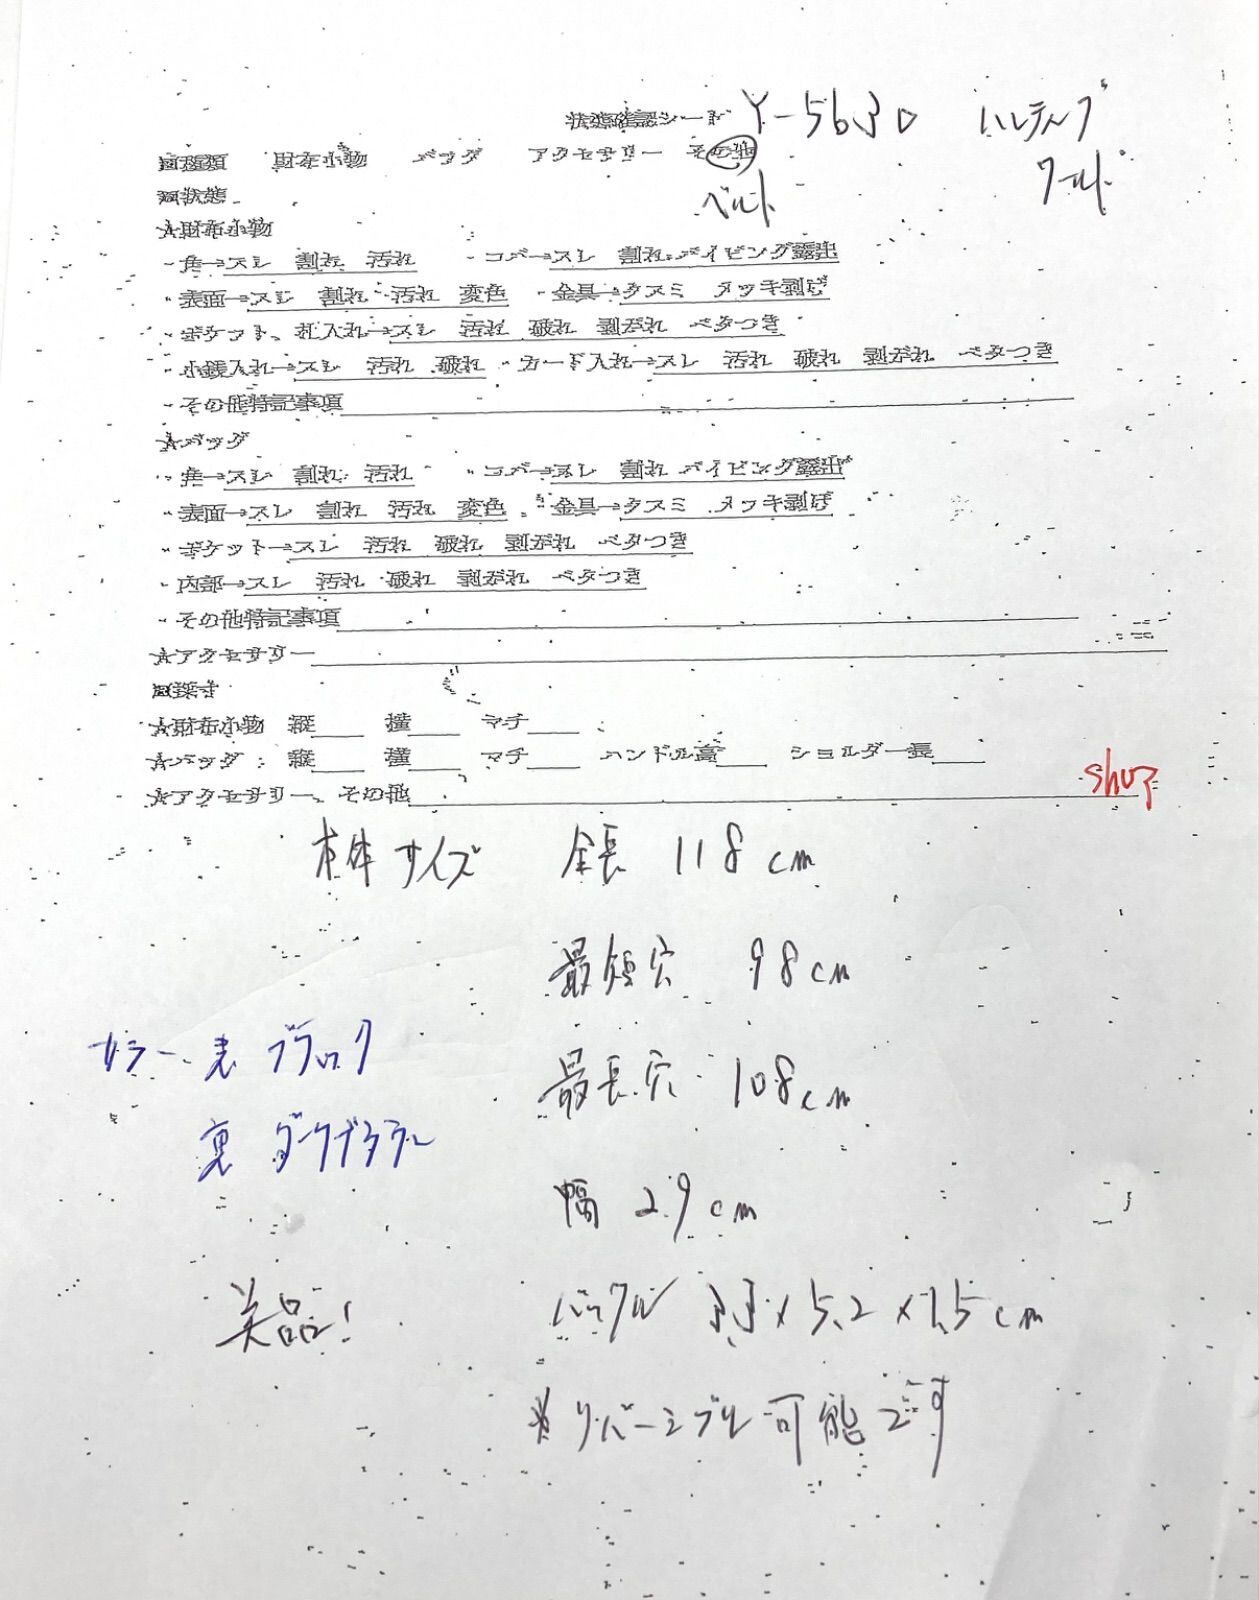 状態確認シート Y-5630 ハンティング
■種類 財布小物 バッグ アクセサリー その他
ワールド
■状態 ベルト
★財布小物
・角→スレ 割れ 汚れ ・コバ→スレ 割れ パイピング露出
・表面→スレ 割れ 汚れ 変色 ・金具→クスミ メッキ剥げ
・ポケット、札入れ→スレ 汚れ 破れ 剥がれ ベタつき
・小銭入れ→スレ 汚れ 破れ ・カード入れ→スレ 汚れ 破れ 剥がれ ベタつき
・その他特記事項
★バッグ
・角→スレ 割れ 汚れ ・コバ→スレ 割れ パイピング露出
・表面→スレ 割れ 汚れ 変色 ・金具→クスミ メッキ剥げ
・ポケット→スレ 汚れ 破れ 剥がれ ベタつき
・内部→スレ 汚れ 破れ 剥がれ ベタつき
・その他特記事項
★アクセサリー
■採寸
★財布小物 縦 横 マチ
★バッグ：縦 横 マチ ハンドル高 ショルダー長
★アクセサリー、その他 shop
本体サイズ 全長 118cm
最短穴 98cm
カラー、表 ブラック
最長穴 108cm
裏 ダークブラウン
幅 2.9cm
美品! バックル 3.3×5.2×1.5cm
※リバーシブル可能です